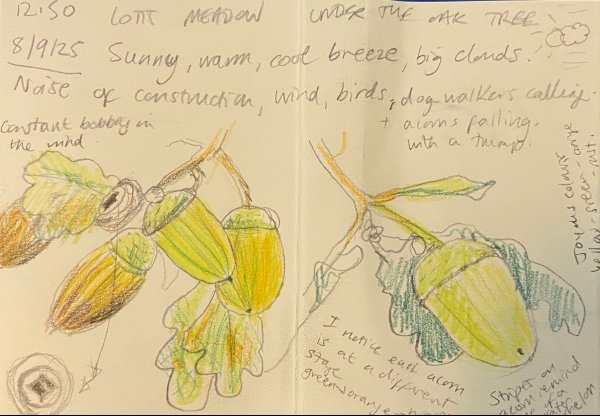 12:50 LOTT MEADOW UNDER THE OAK TREE
8/9/25 Sunny, warm, cool breeze, big clouds.
Noise of construction, wind, birds, dog walkers calling.
+ acorns falling.
with a thump.
Constant bobbing in
the wind
Joyous colours
yellow-green-orange
rust.
I notice each acorn
is at a different
stage
green → orange → brown
Stripes on
acorn remind
me of a
water melon